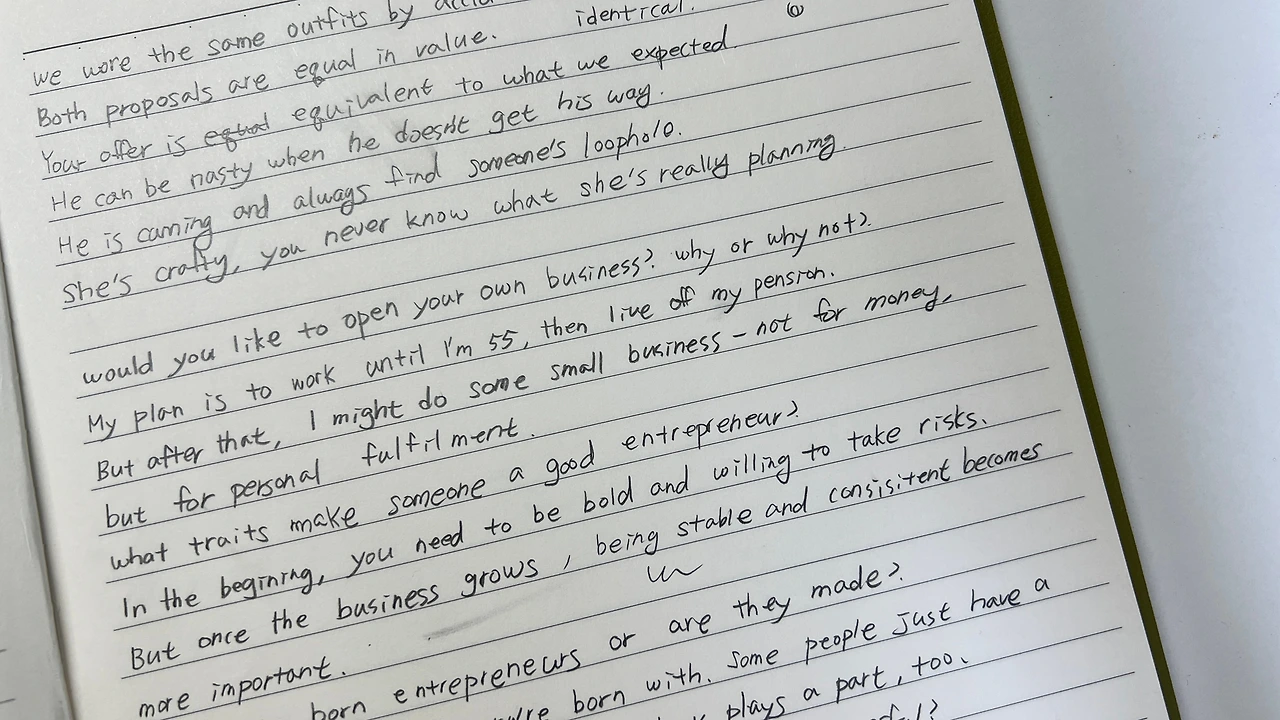 we wore the same outfits by
identical.
Both proposals are equal in value.
Your offer is equal equivalent to what we expected.
He can be nasty when he doesn't get his way.
He is cunning and always find someone's loopholo.
She's crafty, you never know what she's really planning.
would you like to open your own business? why or why not?
My plan is to work until I'm 55, then live off my pension.
But after that, I might do some small business - not for money,
but for personal fulfilment.
what traits make someone a good entrepreneur?
In the begining, you need to be bold and willing to take risks.
But once the business grows, being stable and consisitent becomes
more important.
born entrepreneurs or are they made?
born with. Some people just have a
plays a part, too.